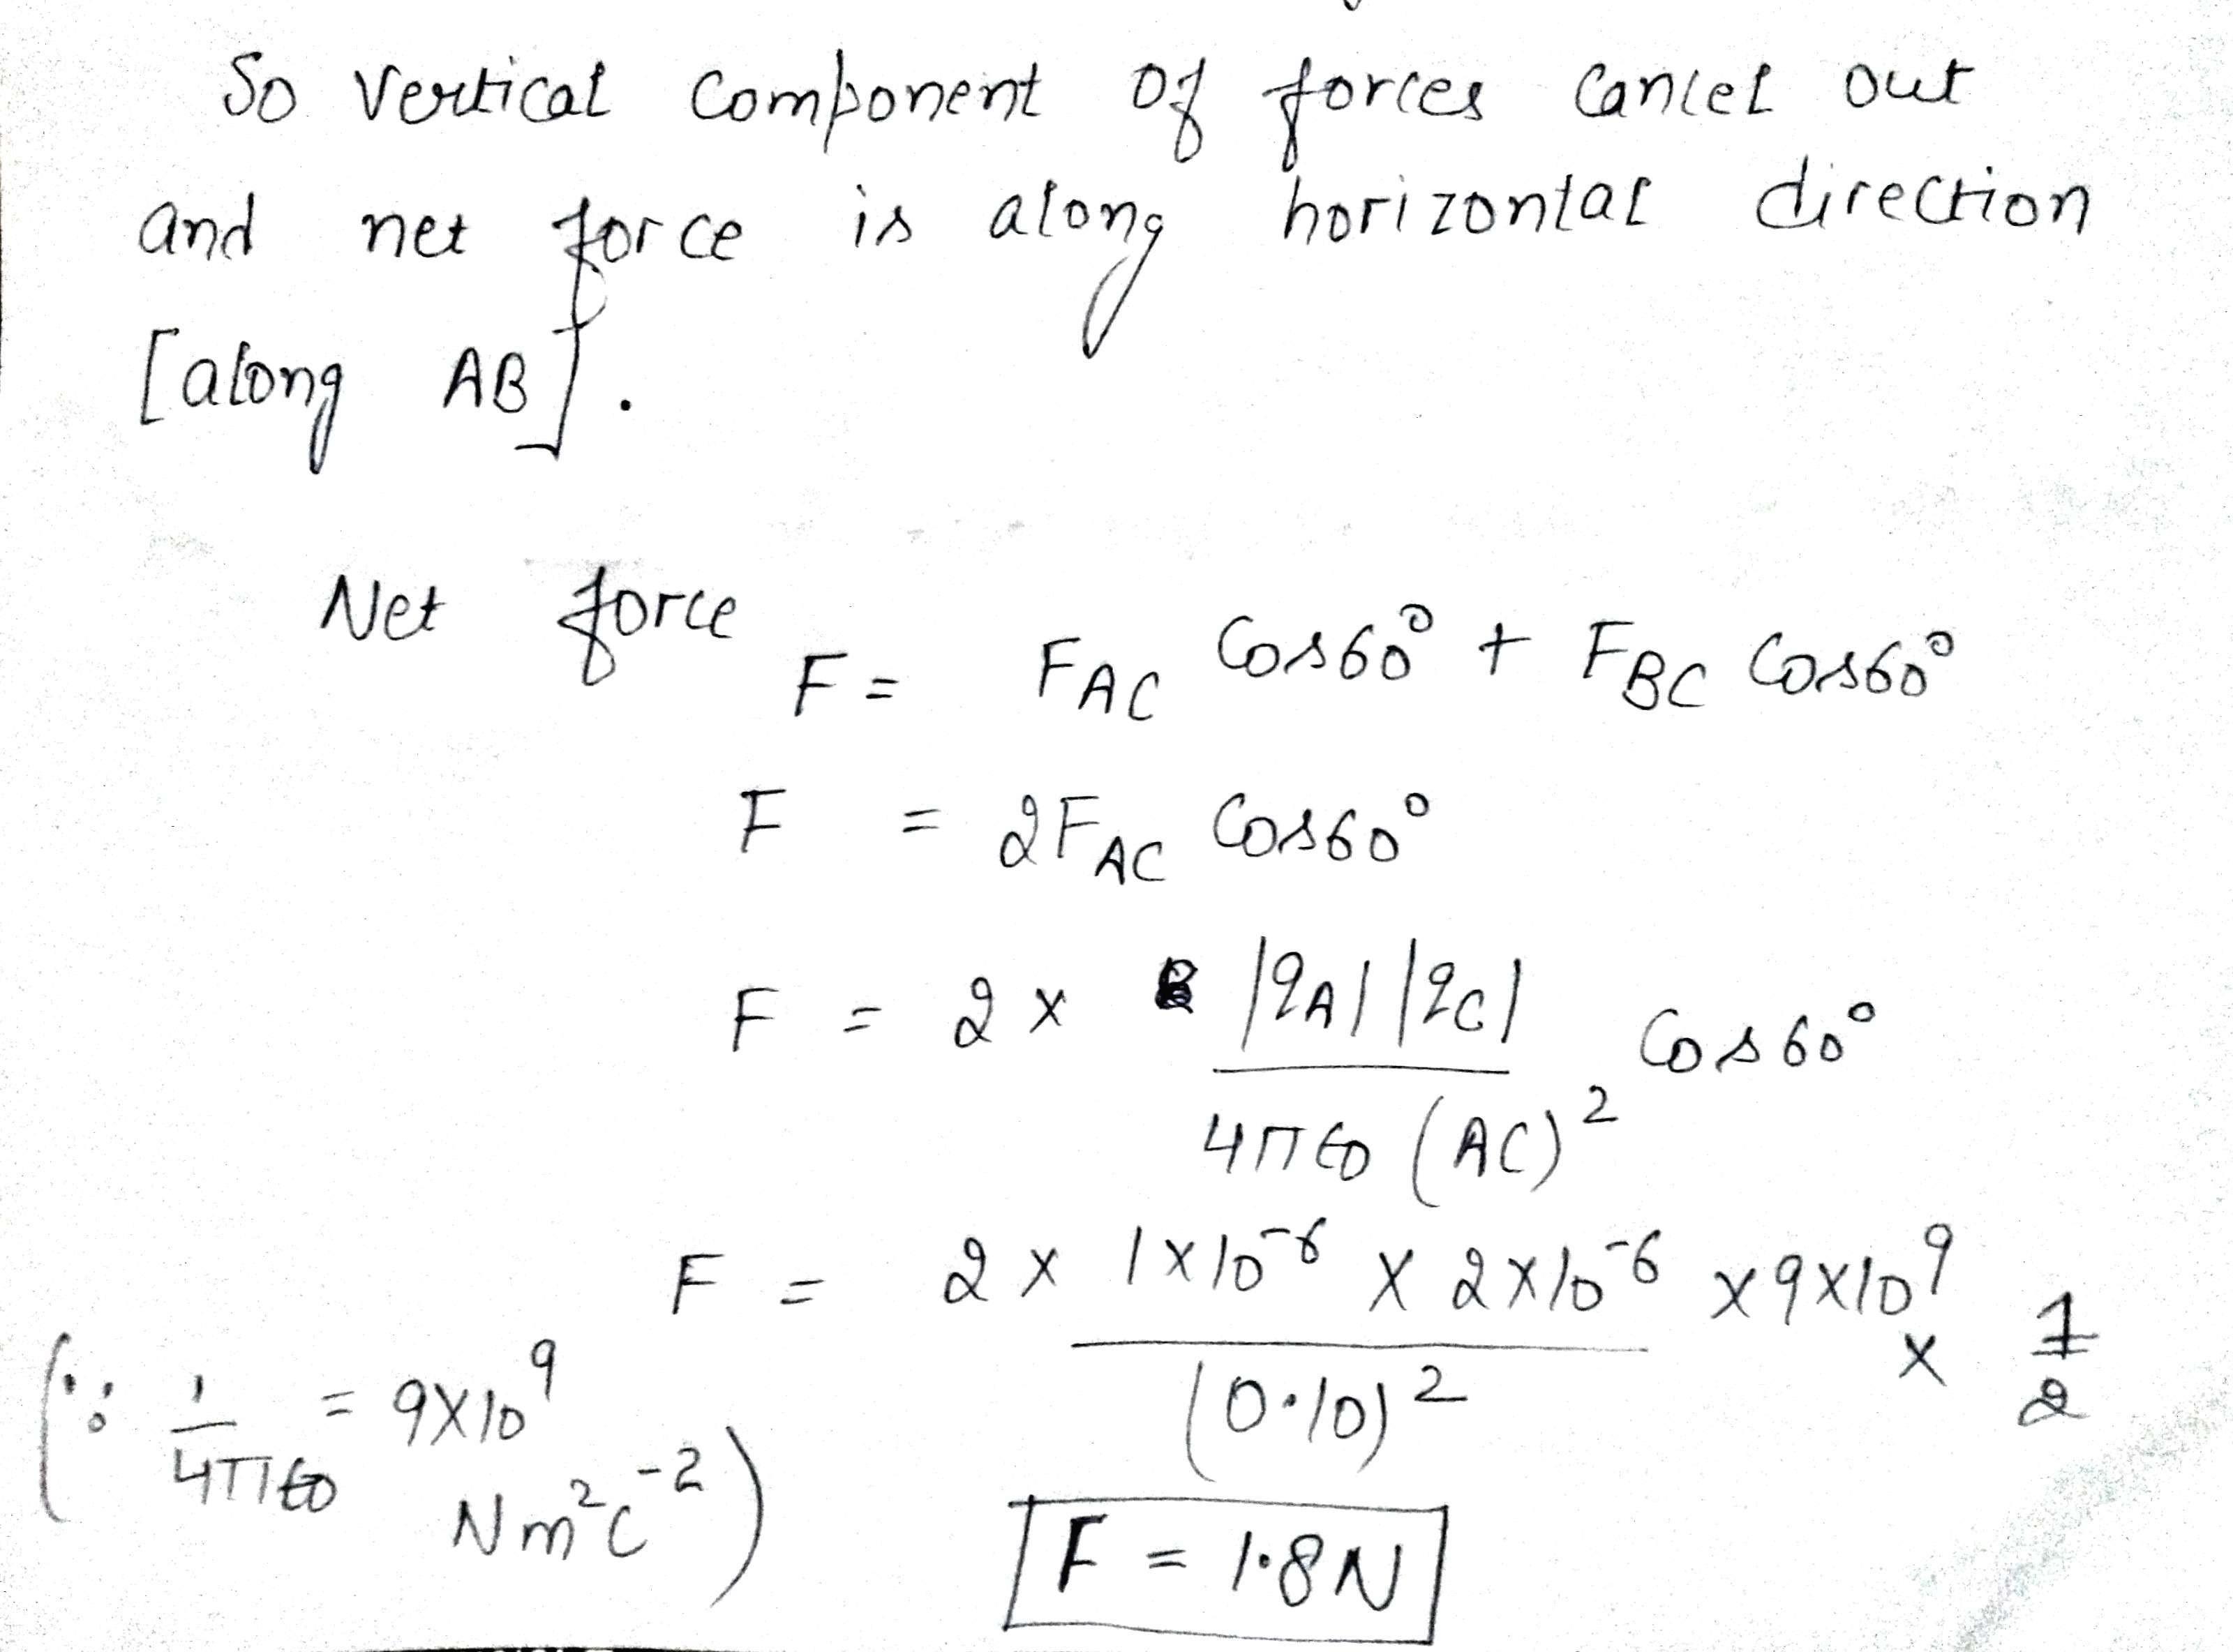 So vertical component of forces cancel out
and net force is along horizontal direction
[along AB].
Net force F = F_AC Cos60° + F_BC Cos60°
F = 2F_AC Cos60°
F = 2 × |q_A| |q_C| / 4π∈0 (AC)² Cos60°
F = 2 × 1×10⁻⁶ × 2×10⁻⁶ × 9×10⁹ / (0.10)² × 1/2
(∵ 1/4π∈0 = 9×10⁹ Nm²C⁻²)
F = 1.8N